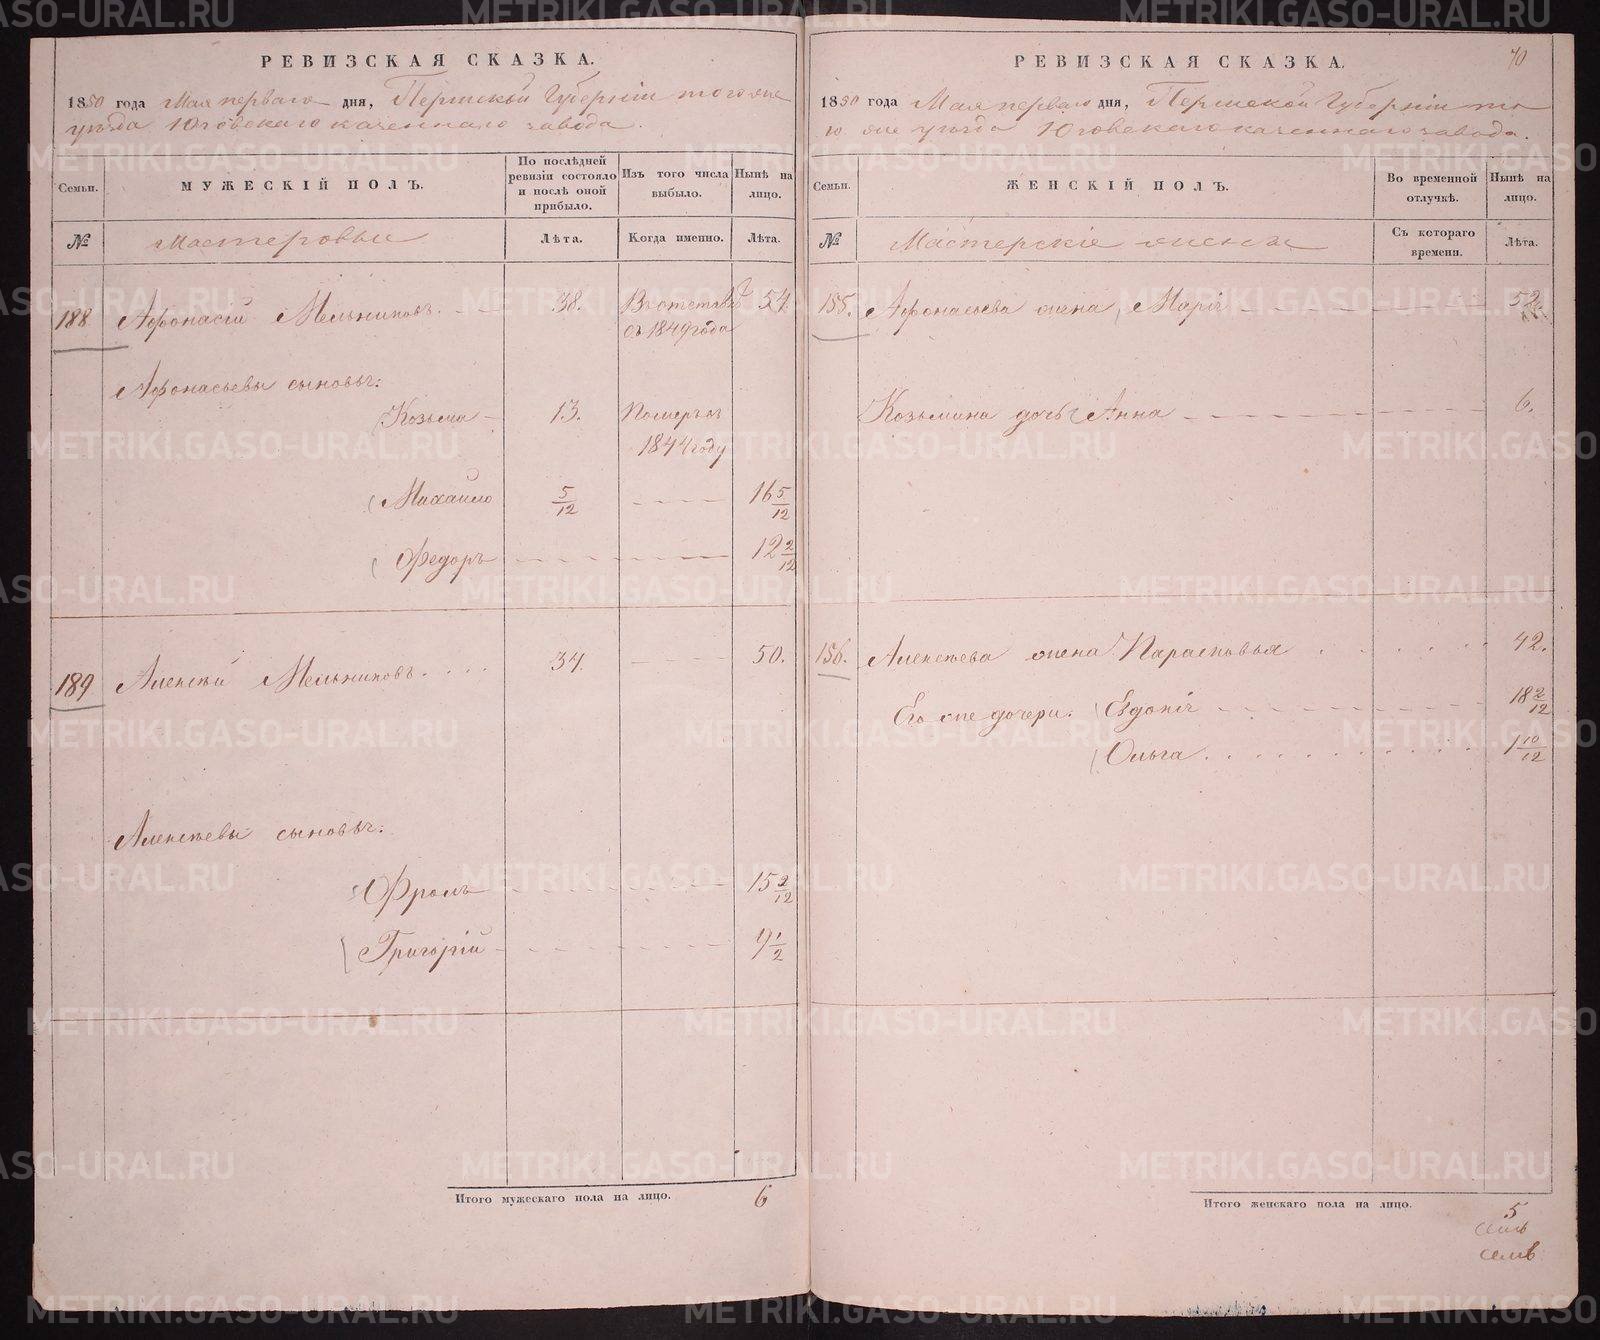 РЕВИЗСКАЯ СКАЗКА.
1850 года Мая перваго дня, Пермской Губерніи того же
уезда Юговскаго казеннаго завода.
Семьи. МУЖЕСКІЙ ПОЛЪ. По послѣдней ревизіи состояло и послѣ оной прибыло. Изъ того числа выбыло. Нынѣ на лицо.
№ Мастеровые Лѣта. Когда именно. Лѣта.
188 Афонасій Мельниковъ. 38. 54.
съ 1849 года
Афонасьевы сыновья:
Козьма 13. Померъ въ
1844 году
Михайло 5/12 16 5/12
Федоръ 12 2/12
189 Алексѣй Мельниковъ 34. 50.
Алексѣевы сыновья:
Фролъ 15 2/12
Григорій 9 1/2
Итого мужескаго пола на лицо. 6
70
РЕВИЗСКАЯ СКАЗКА.
1850 года Мая перваго дня, Пермской Губерніи то
го же уезда Юговскаго казеннаго завода.
Семьи. ЖЕНСКІЙ ПОЛЪ. Во временной отлучкѣ. Нынѣ на лицо.
№ Мастерскіе жены Съ котораго времени. Лѣта.
155. Афонасьева жена Марія 52
Козьмина дочь Анна 6.
156. Алексѣева жена Парасковья 42.
Его же дочери: Евдокія 18 2/12
Ольга 1 10/12
Итого женскаго пола на лицо. 5
METRIKI.GASO-URAL.RU